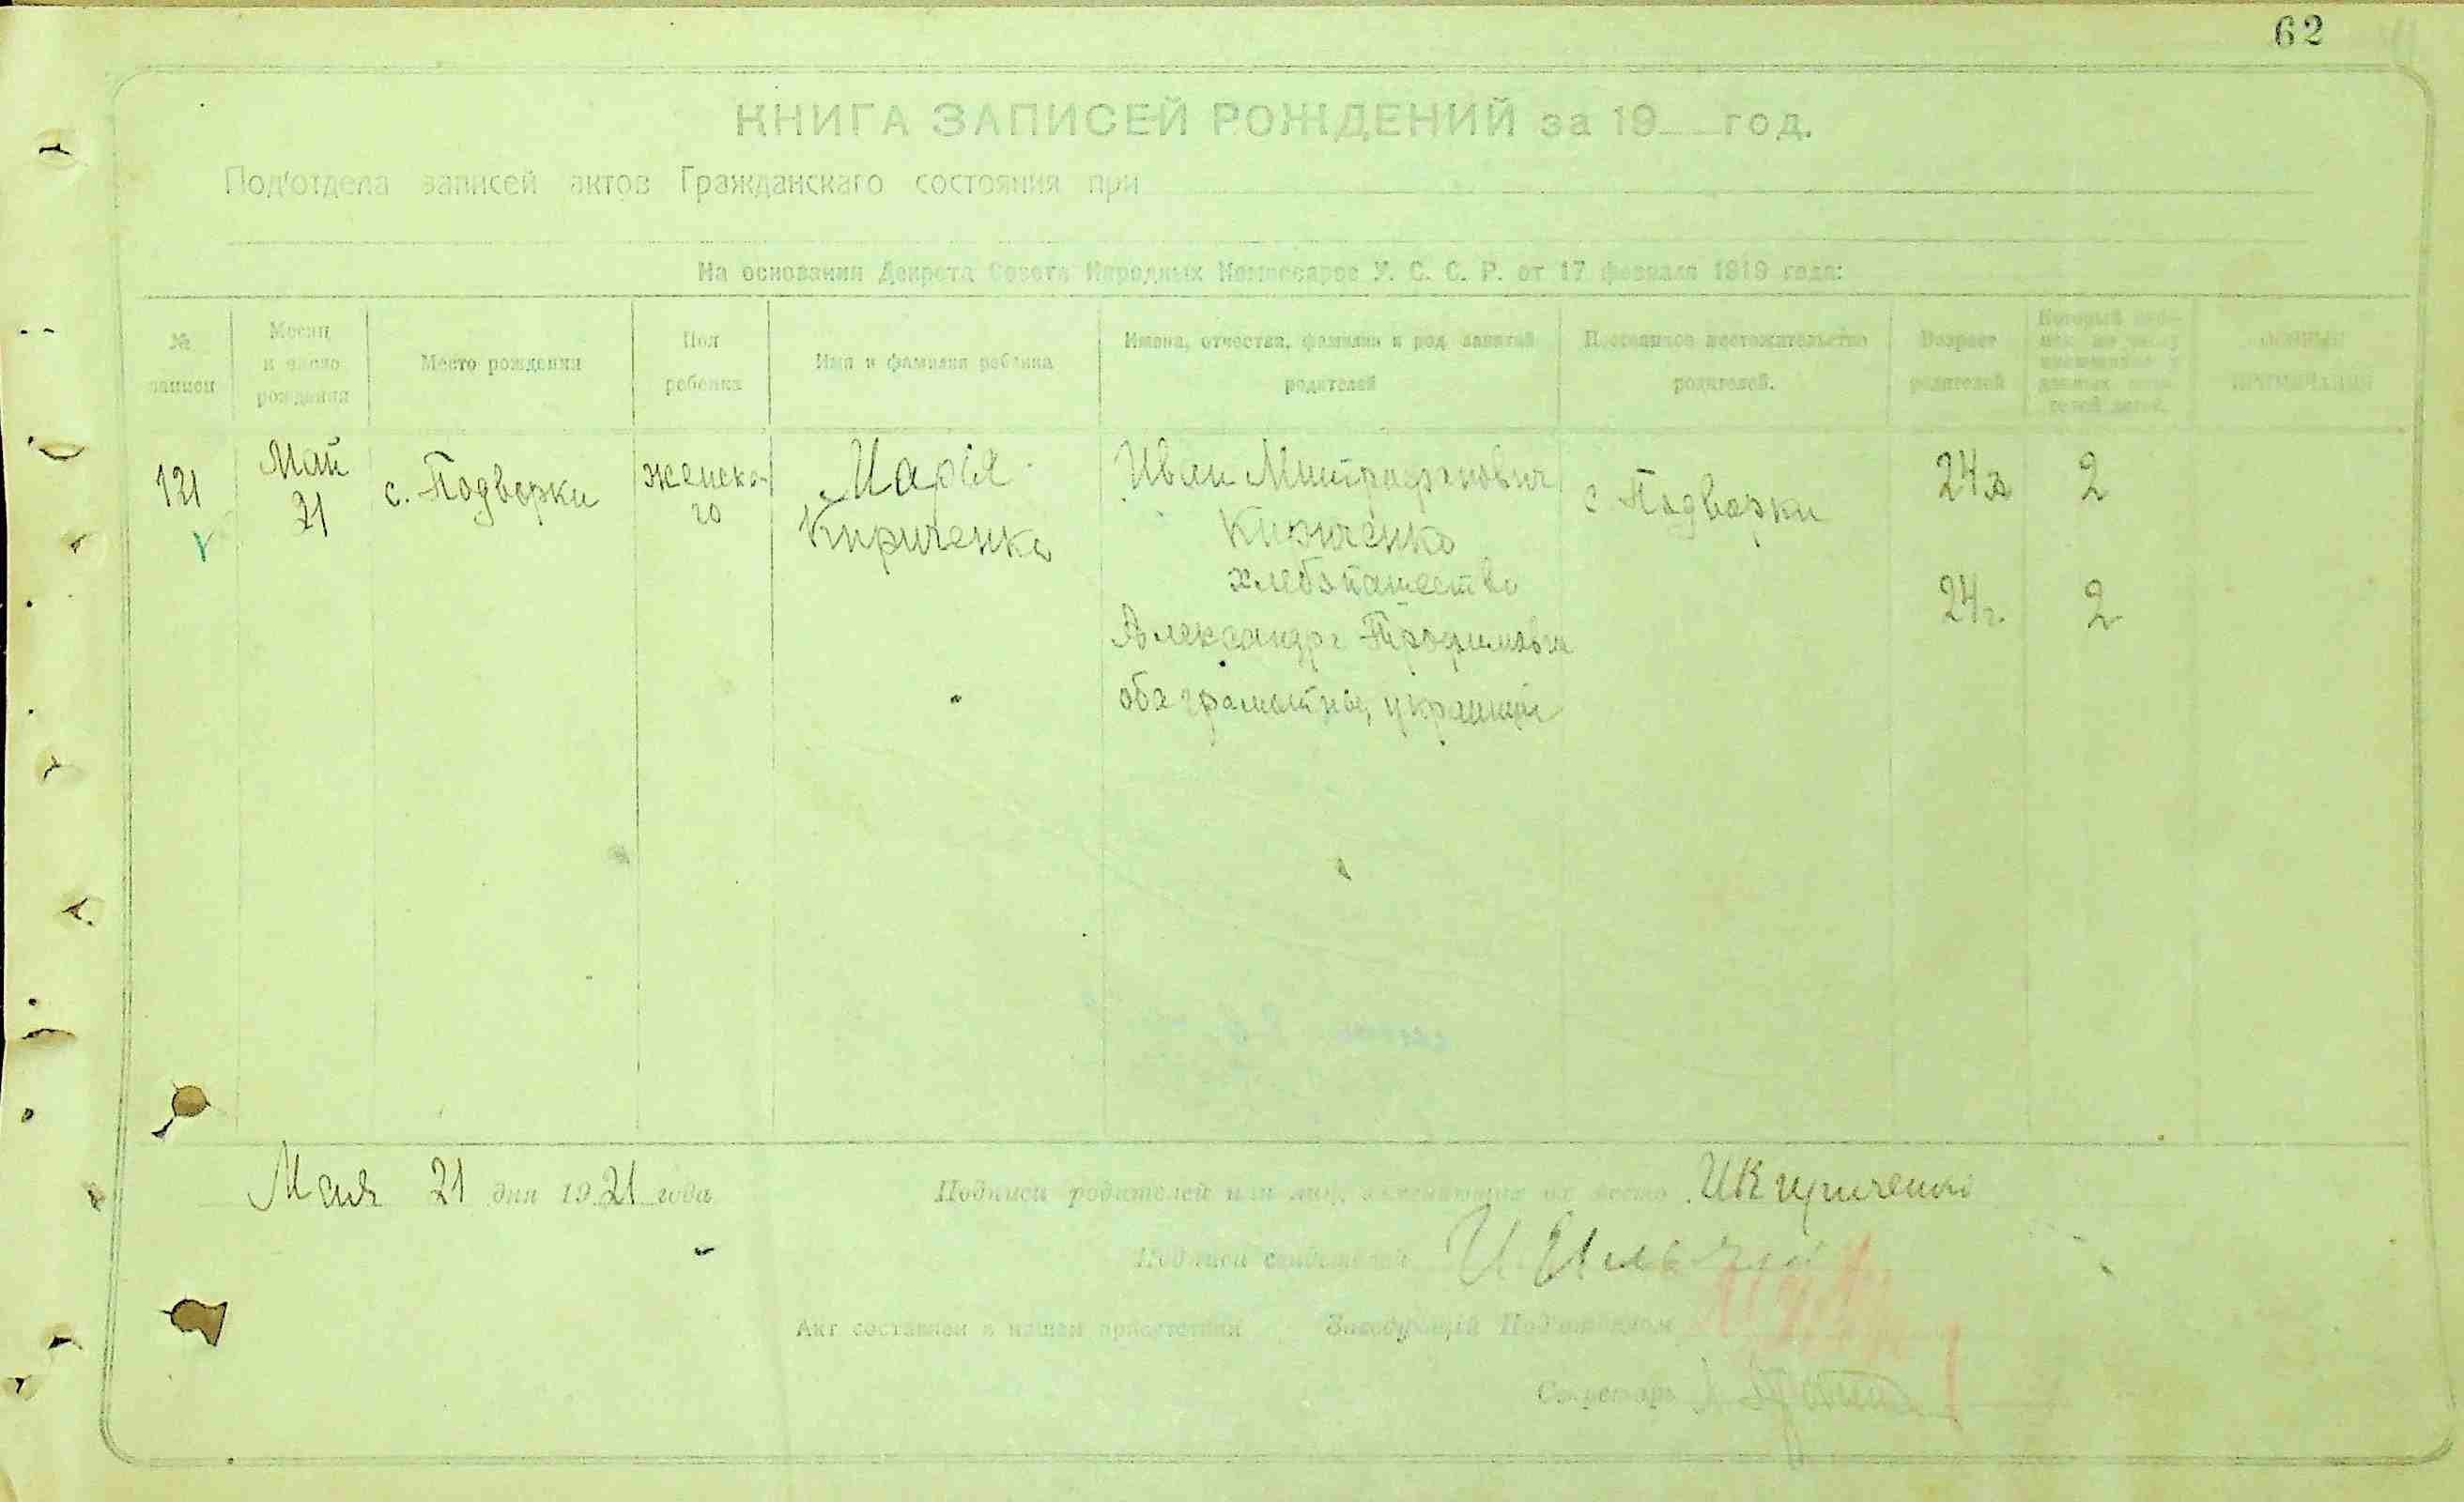 62
КНИГА ЗАПИСЕЙ РОЖДЕНИЙ за 19 год.
Под'отдела записей актов Гражданскаго состояния при
На основании Декрета Совета Народных Комиссаров У. С. С. Р. от 17 февраля 1919 года:
№ записи
Месяц и число рождения
Место рождения
Пол ребенка
Имя и фамилия ребенка
Имена, отчества, фамилии и род занятий родителей
Постоянное местожительство родителей.
Возраст родителей
ОСОБЫЕ ПРИМЕЧАНИЯ
121
Май
21
с. Подворки
женско-
го
Марія
Кириченко
Иван Митрофанович
Кириченко
хлебопашество
Александра Трофимовна
оба грамотны, украинцы
с Подворки
24
2
24 г.
2
Мая 21 дня 1921 года
Подписи родителей или лиц, заменяющих их место И Кириченко
Подписи свидетелей
Акт составлен в нашем присутствии Заведующий Под'отделом
Секретарь